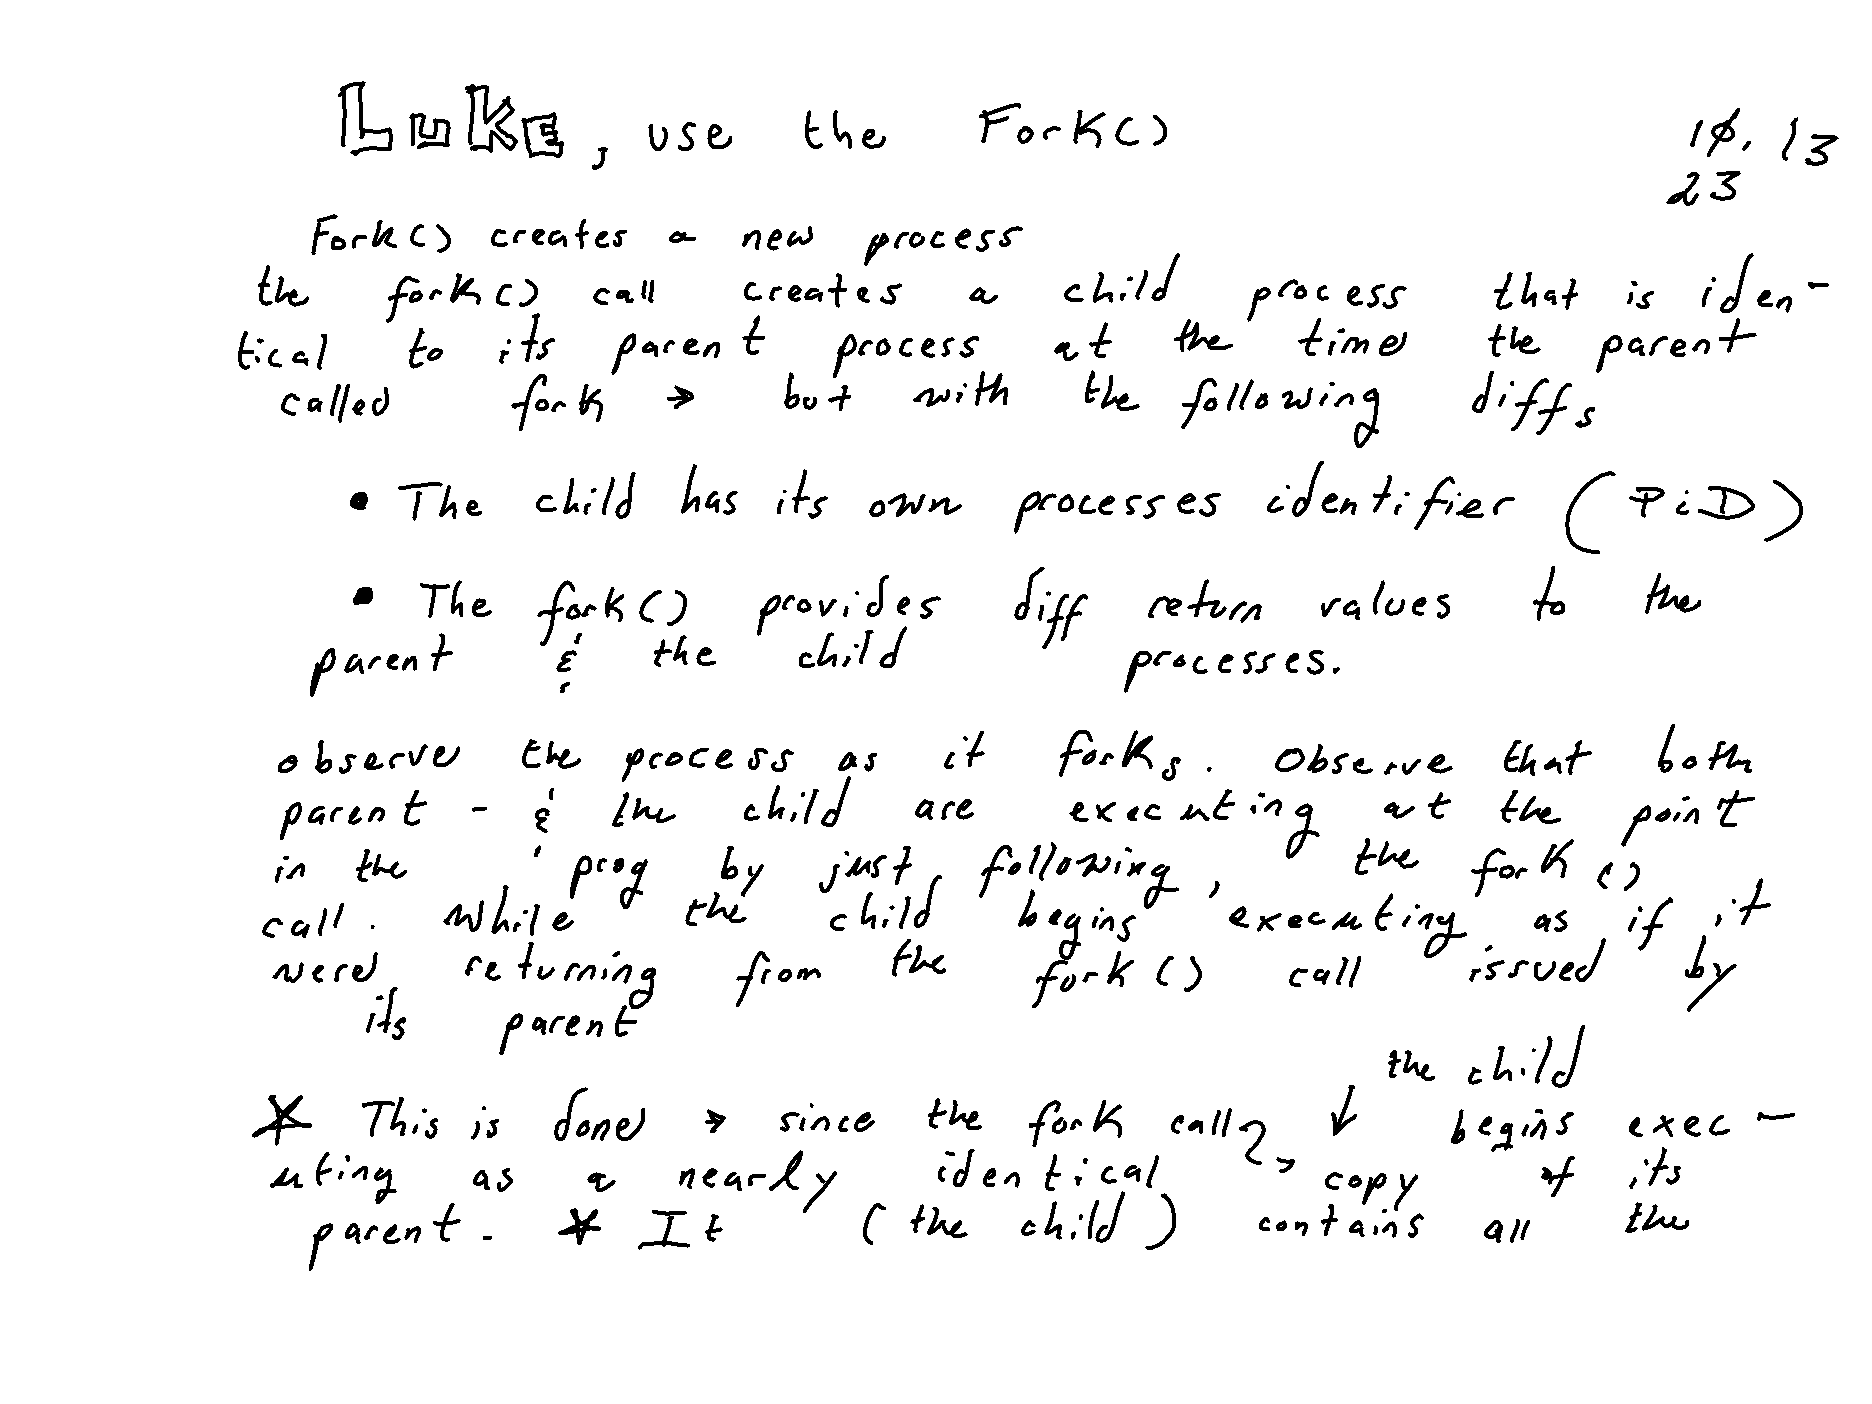 LuKE, use the Fork()
10. 13
23
Fork() creates a new process
the fork() call creates a child process that is iden-
tical to its parent process at the time the parent
called fork → but with the following diffs
• The child has its own processes identifier (PiD)
• The fork() provides diff return values to the
parent & the child processes.
observe the process as it forks. Observe that both
parent - & the child are executing at the point
in the prog by just following, the fork ()
call. While the child begins executing as if it
were returning from the fork() call issued by
its parent
the child
* This is done → since the fork call ↓ begins exec-
uting as a nearly identical copy of its
parent. * It (the child) contains all the